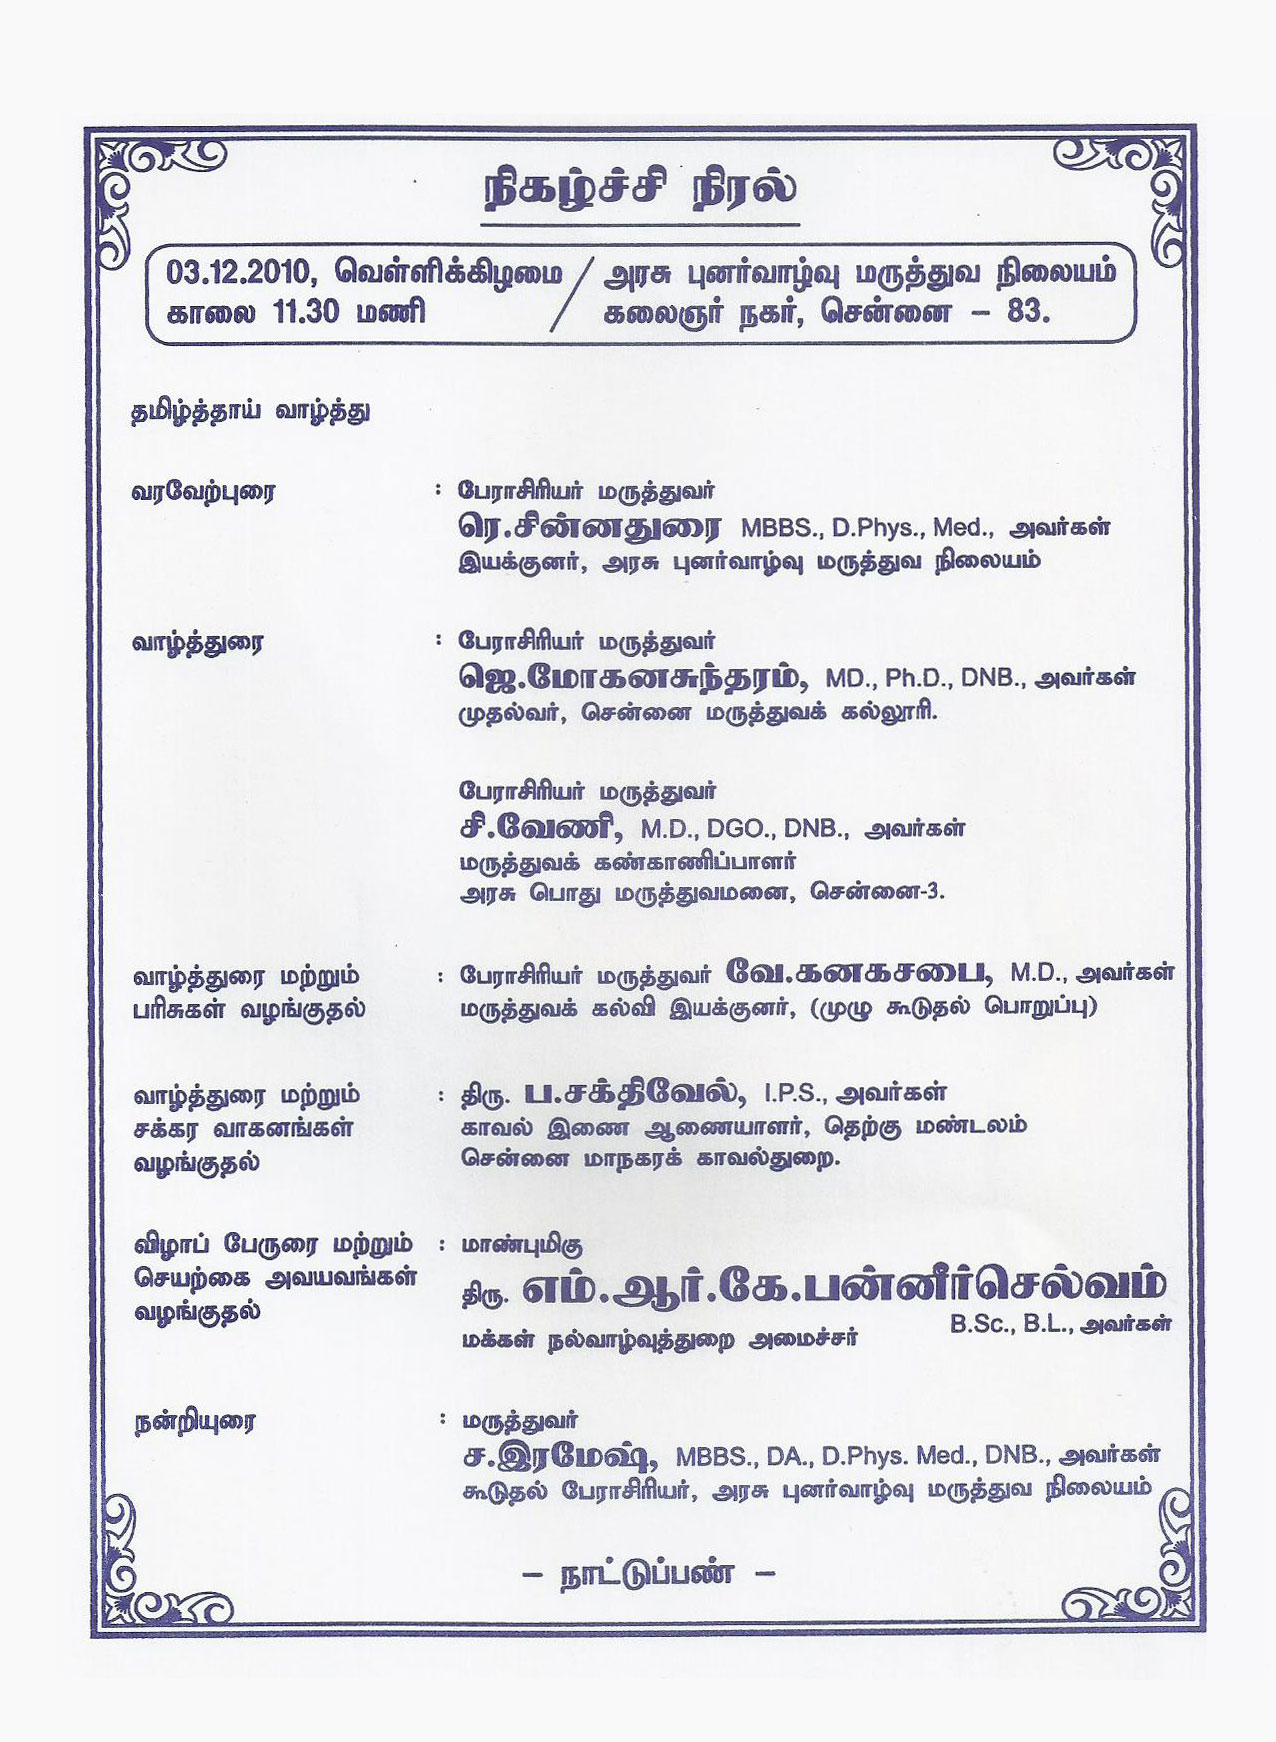 நிகழ்ச்சி நிரல்
03.12.2010, வெள்ளிக்கிழமை / அரசு புனர்வாழ்வு மருத்துவ நிலையம்
காலை 11.30 மணி / கலைஞர் நகர், சென்னை – 83.
தமிழ்த்தாய் வாழ்த்து
வரவேற்புரை : பேராசிரியர் மருத்துவர்
ரெ.சின்னதுரை MBBS., D.Phys., Med., அவர்கள்
இயக்குனர், அரசு புனர்வாழ்வு மருத்துவ நிலையம்
வாழ்த்துரை : பேராசிரியர் மருத்துவர்
ஜெ.மோகனசுந்தரம், MD., Ph.D., DNB., அவர்கள்
முதல்வர், சென்னை மருத்துவக் கல்லூரி.
பேராசிரியர் மருத்துவர்
சி.வேணி, M.D., DGO., DNB., அவர்கள்
மருத்துவக் கண்காணிப்பாளர்
அரசு பொது மருத்துவமனை, சென்னை-3.
வாழ்த்துரை மற்றும் : பேராசிரியர் மருத்துவர் வே.கனகசபை, M.D., அவர்கள்
பரிசுகள் வழங்குதல் மருத்துவக் கல்வி இயக்குனர், (முழு கூடுதல் பொறுப்பு)
வாழ்த்துரை மற்றும் : திரு. ப.சக்திவேல், I.P.S., அவர்கள்
சக்கர வாகனங்கள் காவல் இணை ஆணையாளர், தெற்கு மண்டலம்
வழங்குதல் சென்னை மாநகரக் காவல்துறை.
விழாப் பேருரை மற்றும் : மாண்புமிகு
செயற்கை அவயவங்கள் திரு. எம்.ஆர்.கே.பன்னீர்செல்வம்
வழங்குதல் B.Sc., B.L., அவர்கள்
மக்கள் நல்வாழ்வுத்துறை அமைச்சர்
நன்றியுரை : மருத்துவர்
ச.இரமேஷ், MBBS., DA., D.Phys. Med., DNB., அவர்கள்
கூடுதல் பேராசிரியர், அரசு புனர்வாழ்வு மருத்துவ நிலையம்
– நாட்டுப்பண் –